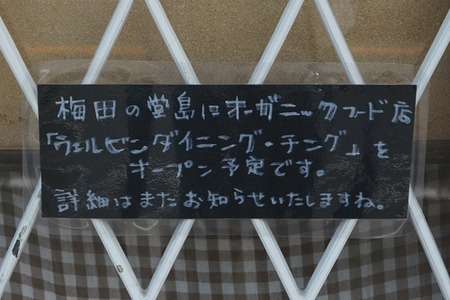 梅田の堂島にオーガニックフード店
「ウェルビンダイニング・チング」を
オープン予定です。
詳細はまたお知らせいたしますね。